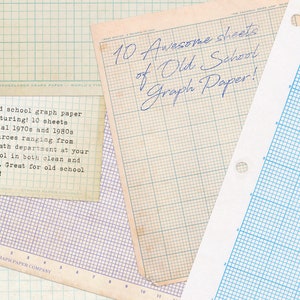 10 Awesome sheets
of Old School
Graph Paper!
d school graph paper
turing! 10 sheets
al 1970s and 1980s
urces ranging from
ath department at your
ol in both clean and
. Great for old school
GRAPH PAPER COMPANY